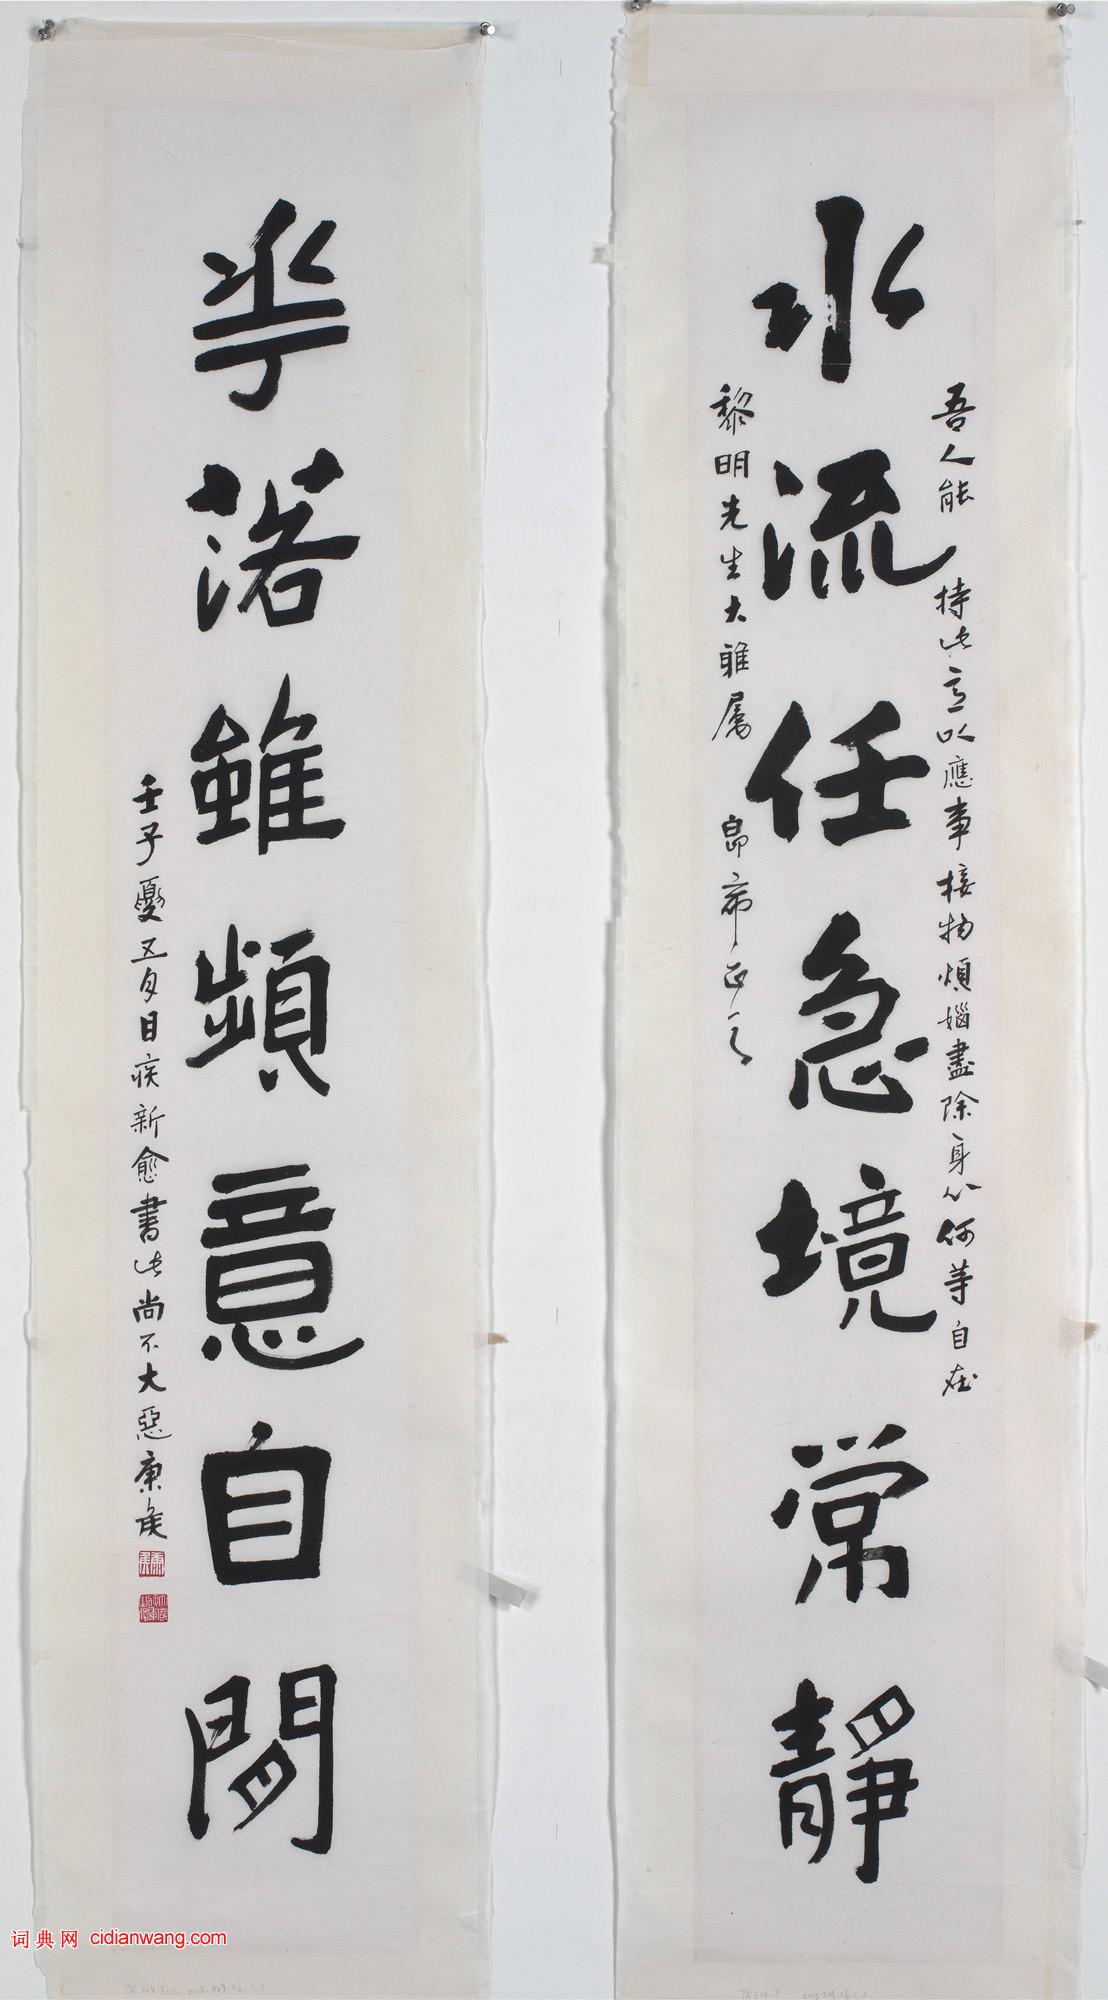 水流任急境常靜
吾人能持此意以應事接物煩惱盡除身心何等自在
黎明先生大雅屬 即希正之
花落雖頻意自閒
壬子夏五月目疾新愈書此尚不大惡康侯
词典网 cidianwang.com